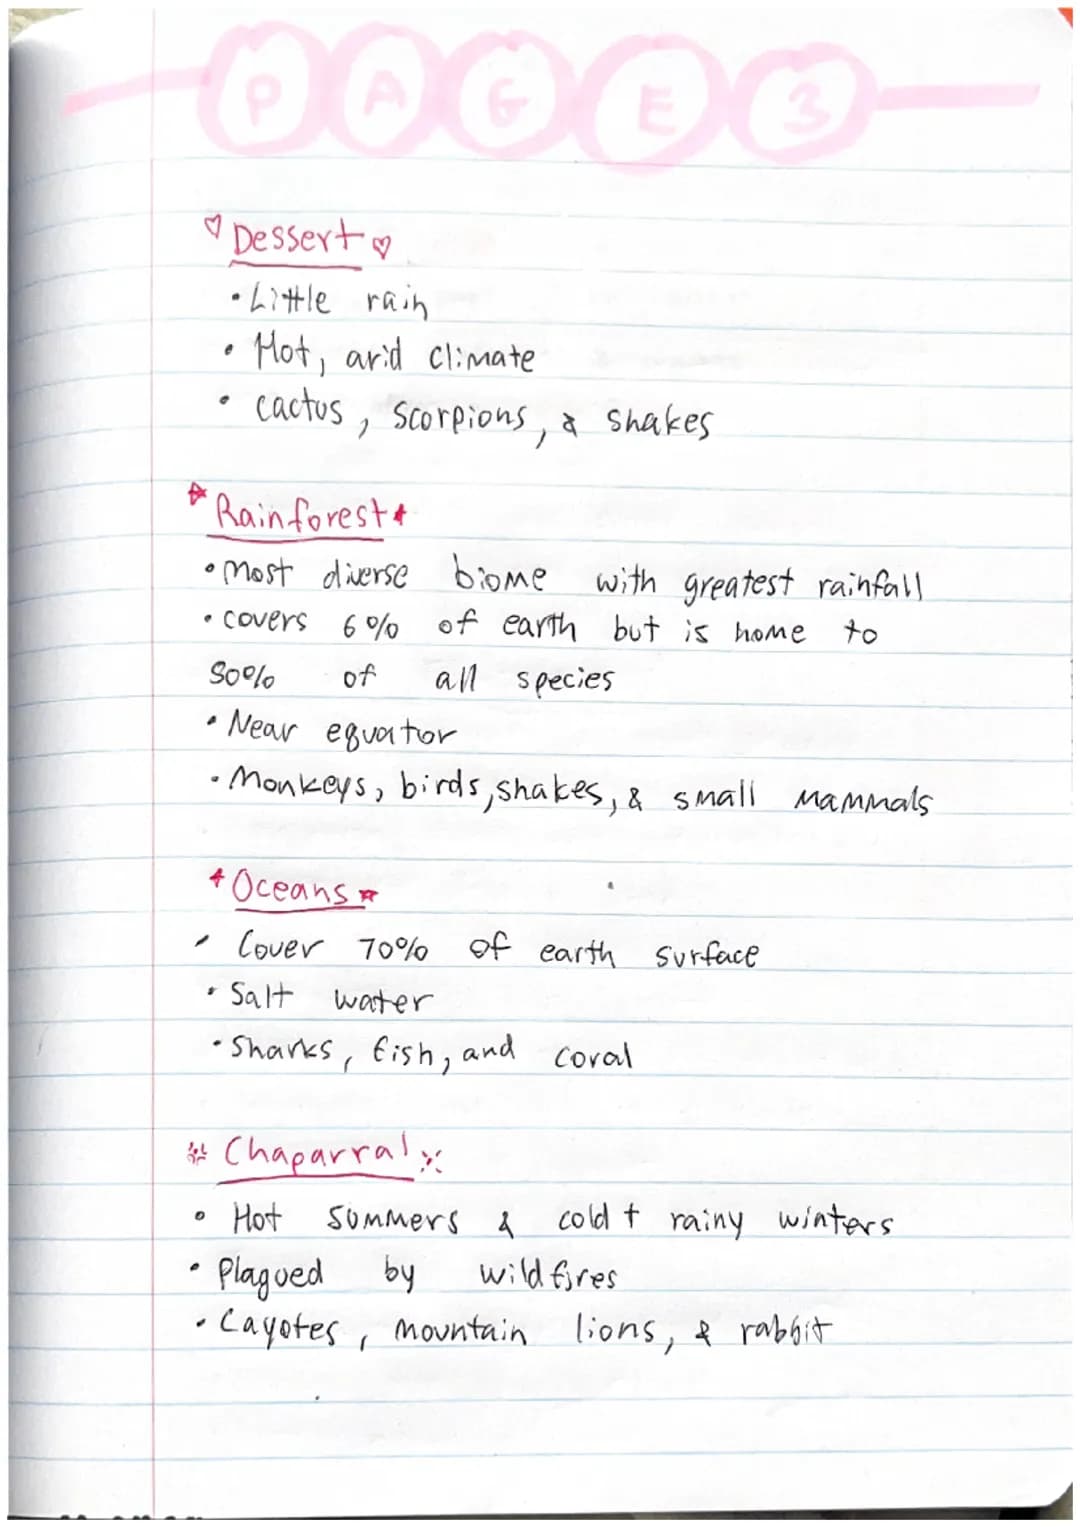 PAGE 3
Dessert
• Little rain
• Hot, arid climate
• cactus, scorpions, & snakes
Rainforest
• most diverse biome with greatest rainfall
• covers 6% of earth but is home to
80% of all species
• Near equator
• Monkeys, birds, snakes, & small mammals
Oceans
• Cover 70% of earth surface
• Salt water
• Sharks, fish, and coral
Chaparral
• Hot summers & cold + rainy winters
• Plagued by wildfires
• Cayotes, mountain lions, & rabbit